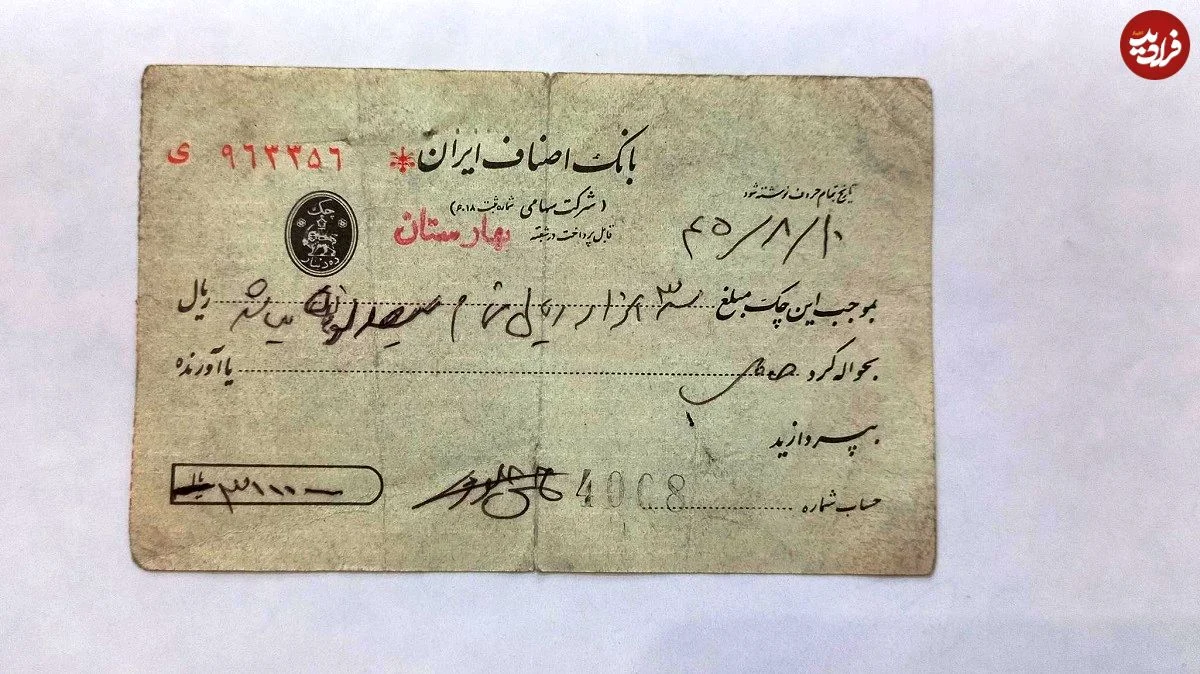 فرادید
بانک اصناف ایران
۹۶۳۳۵۶ ی
(شرکت سهامی شماره ثبت ۶۰۱۸)
تاریخ بتمام حروف نوشته شود
قابل پرداخت در شعبه بهارستان
۴۵/۸/۱۰
چک
ده دینار
بموجب این چک مبلغ هزار ریال ریال
بحواله کرد یا آورنده
بپردازید
حساب شماره 4008
ریال